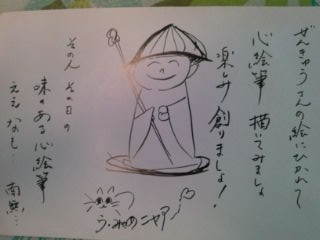 ぜんきゅうさんの絵にひかれて
心絵筆 描いてみましょ
楽しみ 創りましょ!
その人 その日の
味のある心絵筆
ええなし… 南無…
う・みゃのニャアー